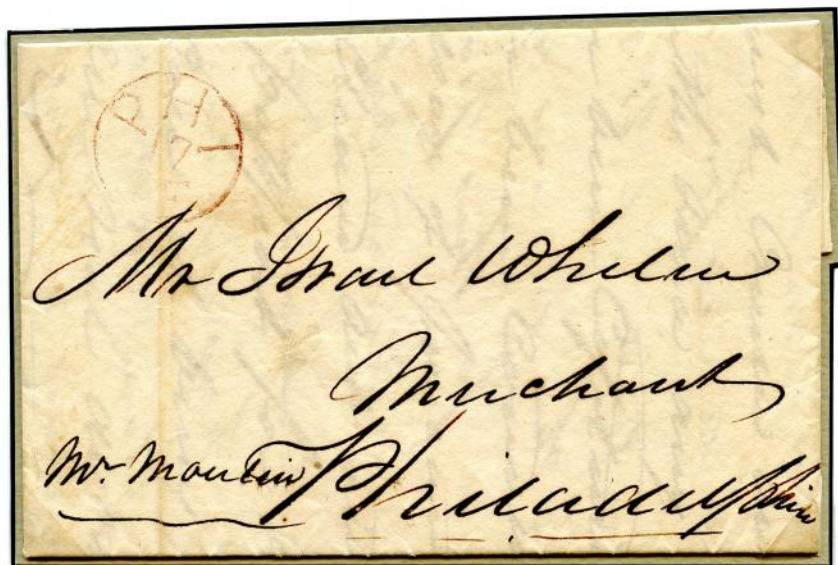 PHI
17
Mr Israel Whelen
Merchant
Mr. Philadelphia